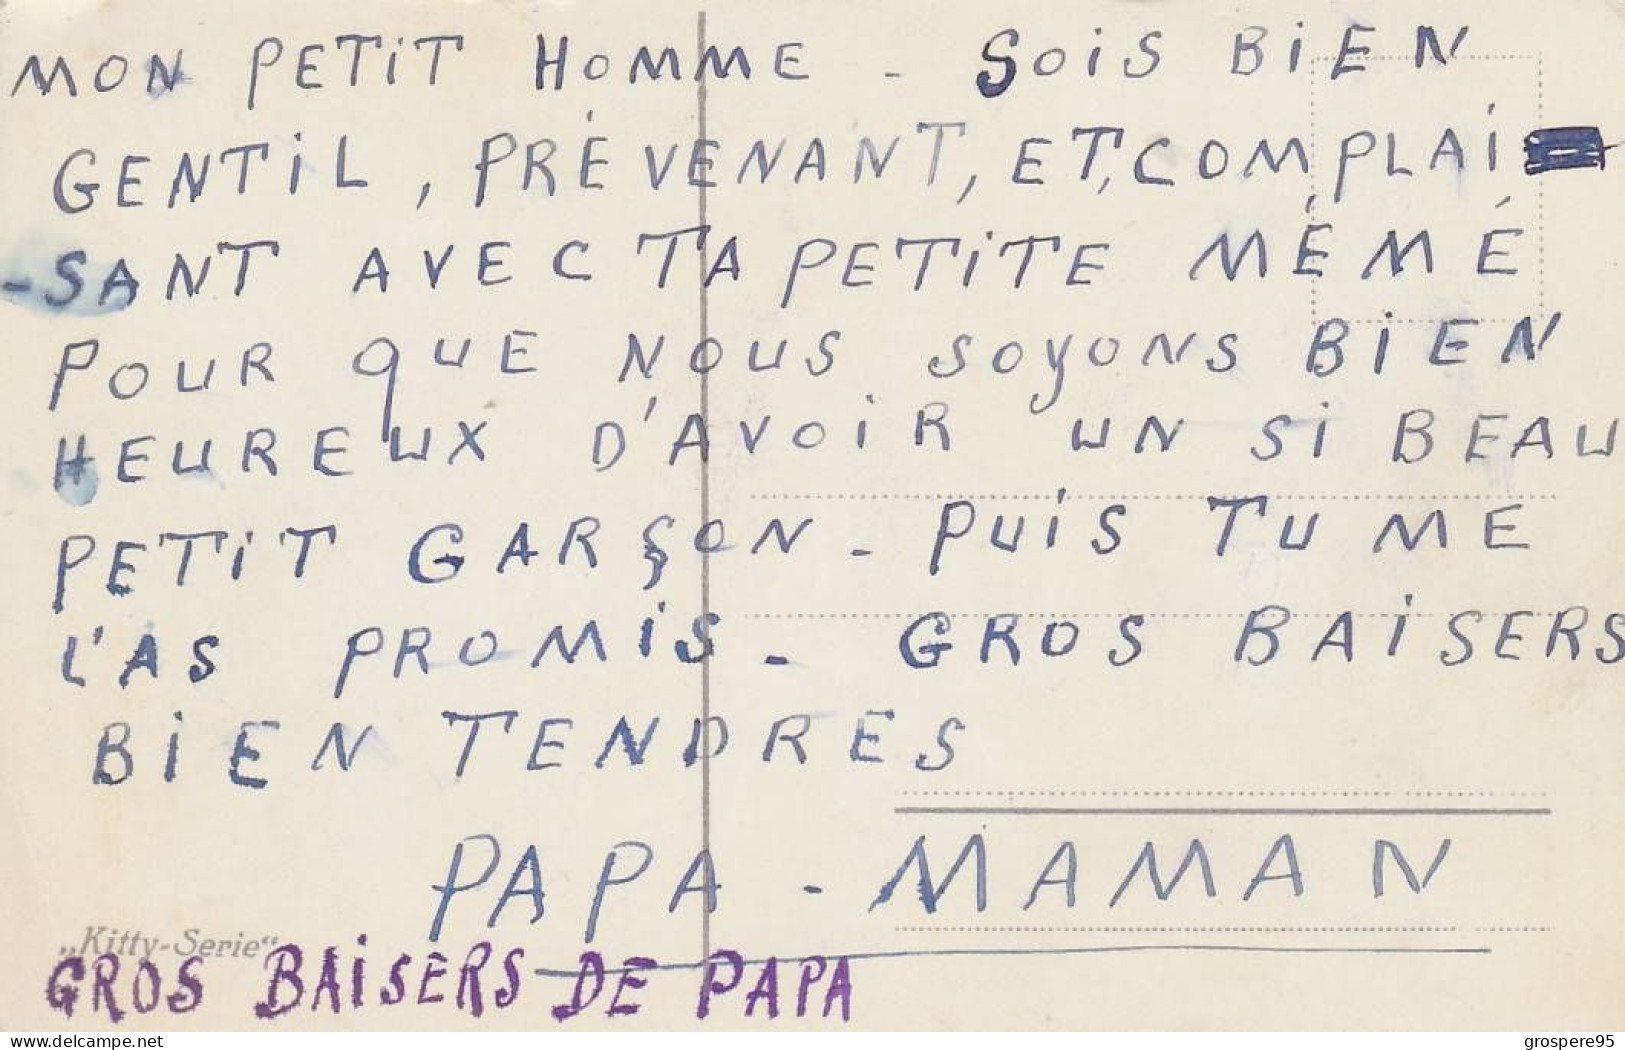 MON PETIT HOMME - SOIS BIEN
GENTIL, PRÉVENANT, ET, COMPLAI
-SANT AVEC TA PETITE MÉMÉ
POUR QUE NOUS SOYONS BIEN
HEUREUX D'AVOIR UN SI BEAU
PETIT GARÇON - PUIS TU ME
L'AS PROMIS - GROS BAISERS
BIEN TENDRES
PAPA - MAMAN
„Kitty-Serie“
GROS BAISERS DE PAPA
www.delcampe.net
grospere95